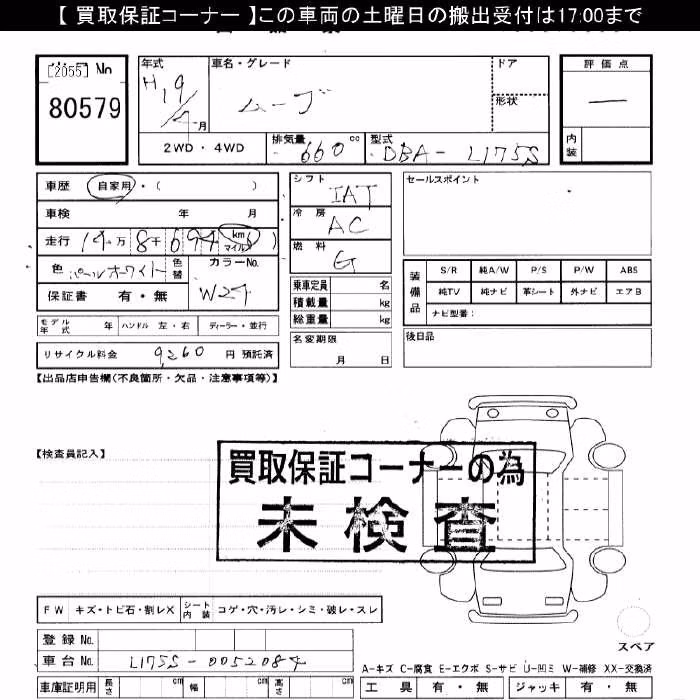 【 買取保証コーナー 】この車両の土曜日の搬出受付は17:00まで
[2055] No
80579
年式
H19/4月
車名・グレード
ムーブ
ドア
形状
評価点
—
内装
2WD・4WD
排気量 660 cc
型式 DBA- L175S
車歴 自家用・( )
車検 年 月
走行 14万8千694 (km マイル)
色 パールホワイト 色替
カラーNo. W24
保証書 有・無
シフト IAT
冷房 AC
燃料 G
乗車定員 名
積載量 kg
総重量 kg
名変期限
月 日
セールスポイント
装備品
S/R 純A/W P/S P/W ABS
純TV 純ナビ 革シート 外ナビ エアB
ナビ型番：
後日品
モデル年式 年 ハンドル 左・右 ディーラー・並行
リサイクル料金 9,260 円 預託済
【出品店申告欄(不良箇所・欠品・注意事項等)】
【検査員記入】
買取保証コーナーの為
未検査
FW キズ・トビ石・割レX シート内装 コゲ・穴・汚レ・シミ・破レ・スレ
スペア
登録 No.
車台 No. L175S-0052084
A-キズ C-腐食 E-エクボ S-サビ U-凹ミ W-補修 XX-交換済
車庫証明用 長さ cm 幅 cm 高さ cm
工具 有・無 ジャッキ 有・無